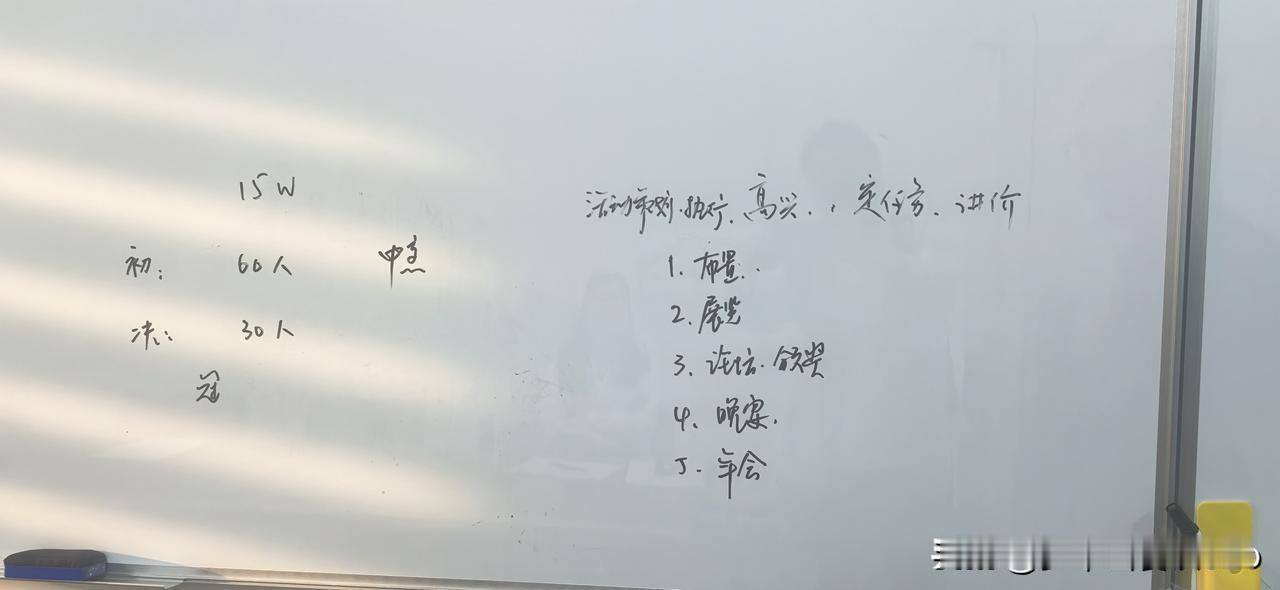 15W
初: 60人
决: 30人
冠
活动策划.执行、高兴.、定任务、进价
1. 布置..
2. 展览
3. 论坛. 颁奖
4. 晚宴.
5. 年会